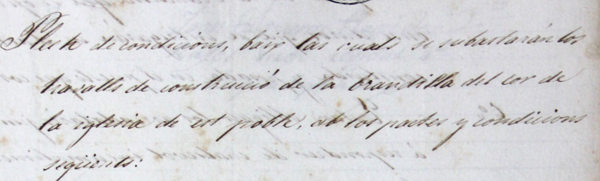 Plech de condicions, baix las cuals se subastarán los
travalls de construcció de la brantilla del cor de
la iglesia de est poble, ab los pactes y condicions
següents: